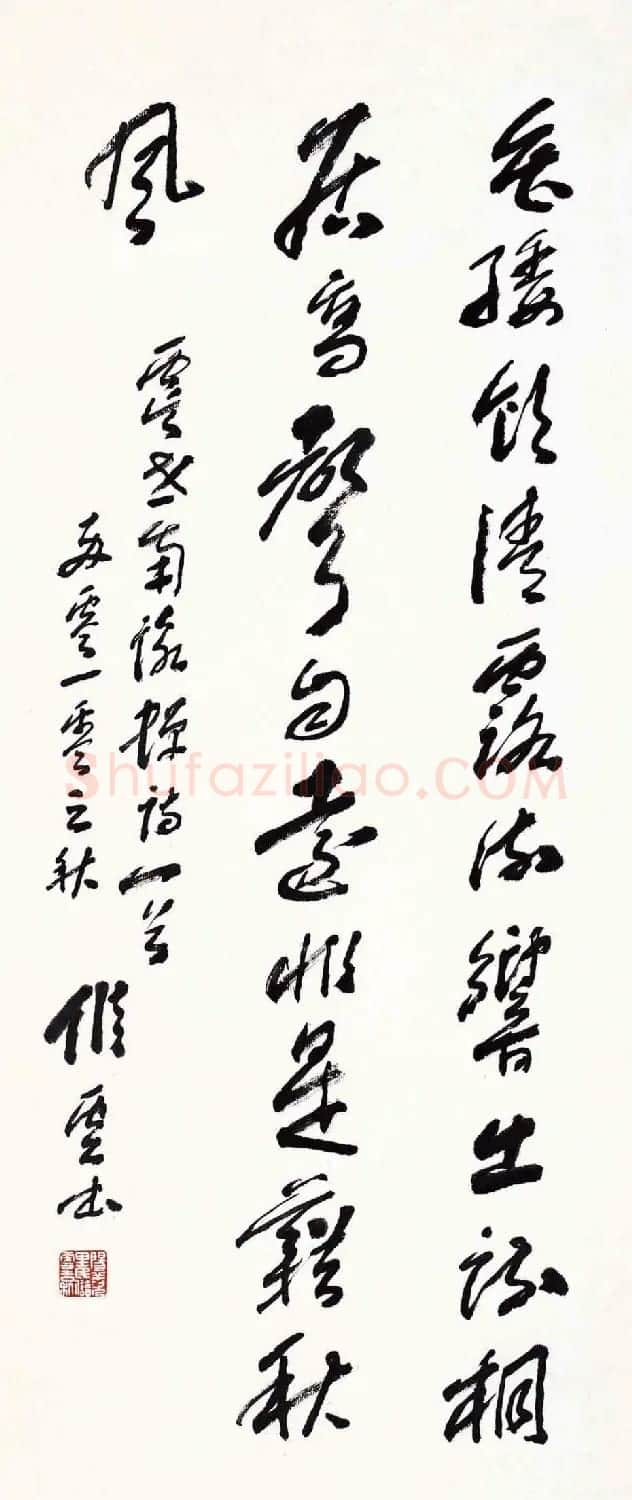 垂緌飲清露流響出疏桐
居高聲自遠非是藉秋
風
虞世南詠蟬詩一首
零一零之秋
書
Shufaziliao.COM